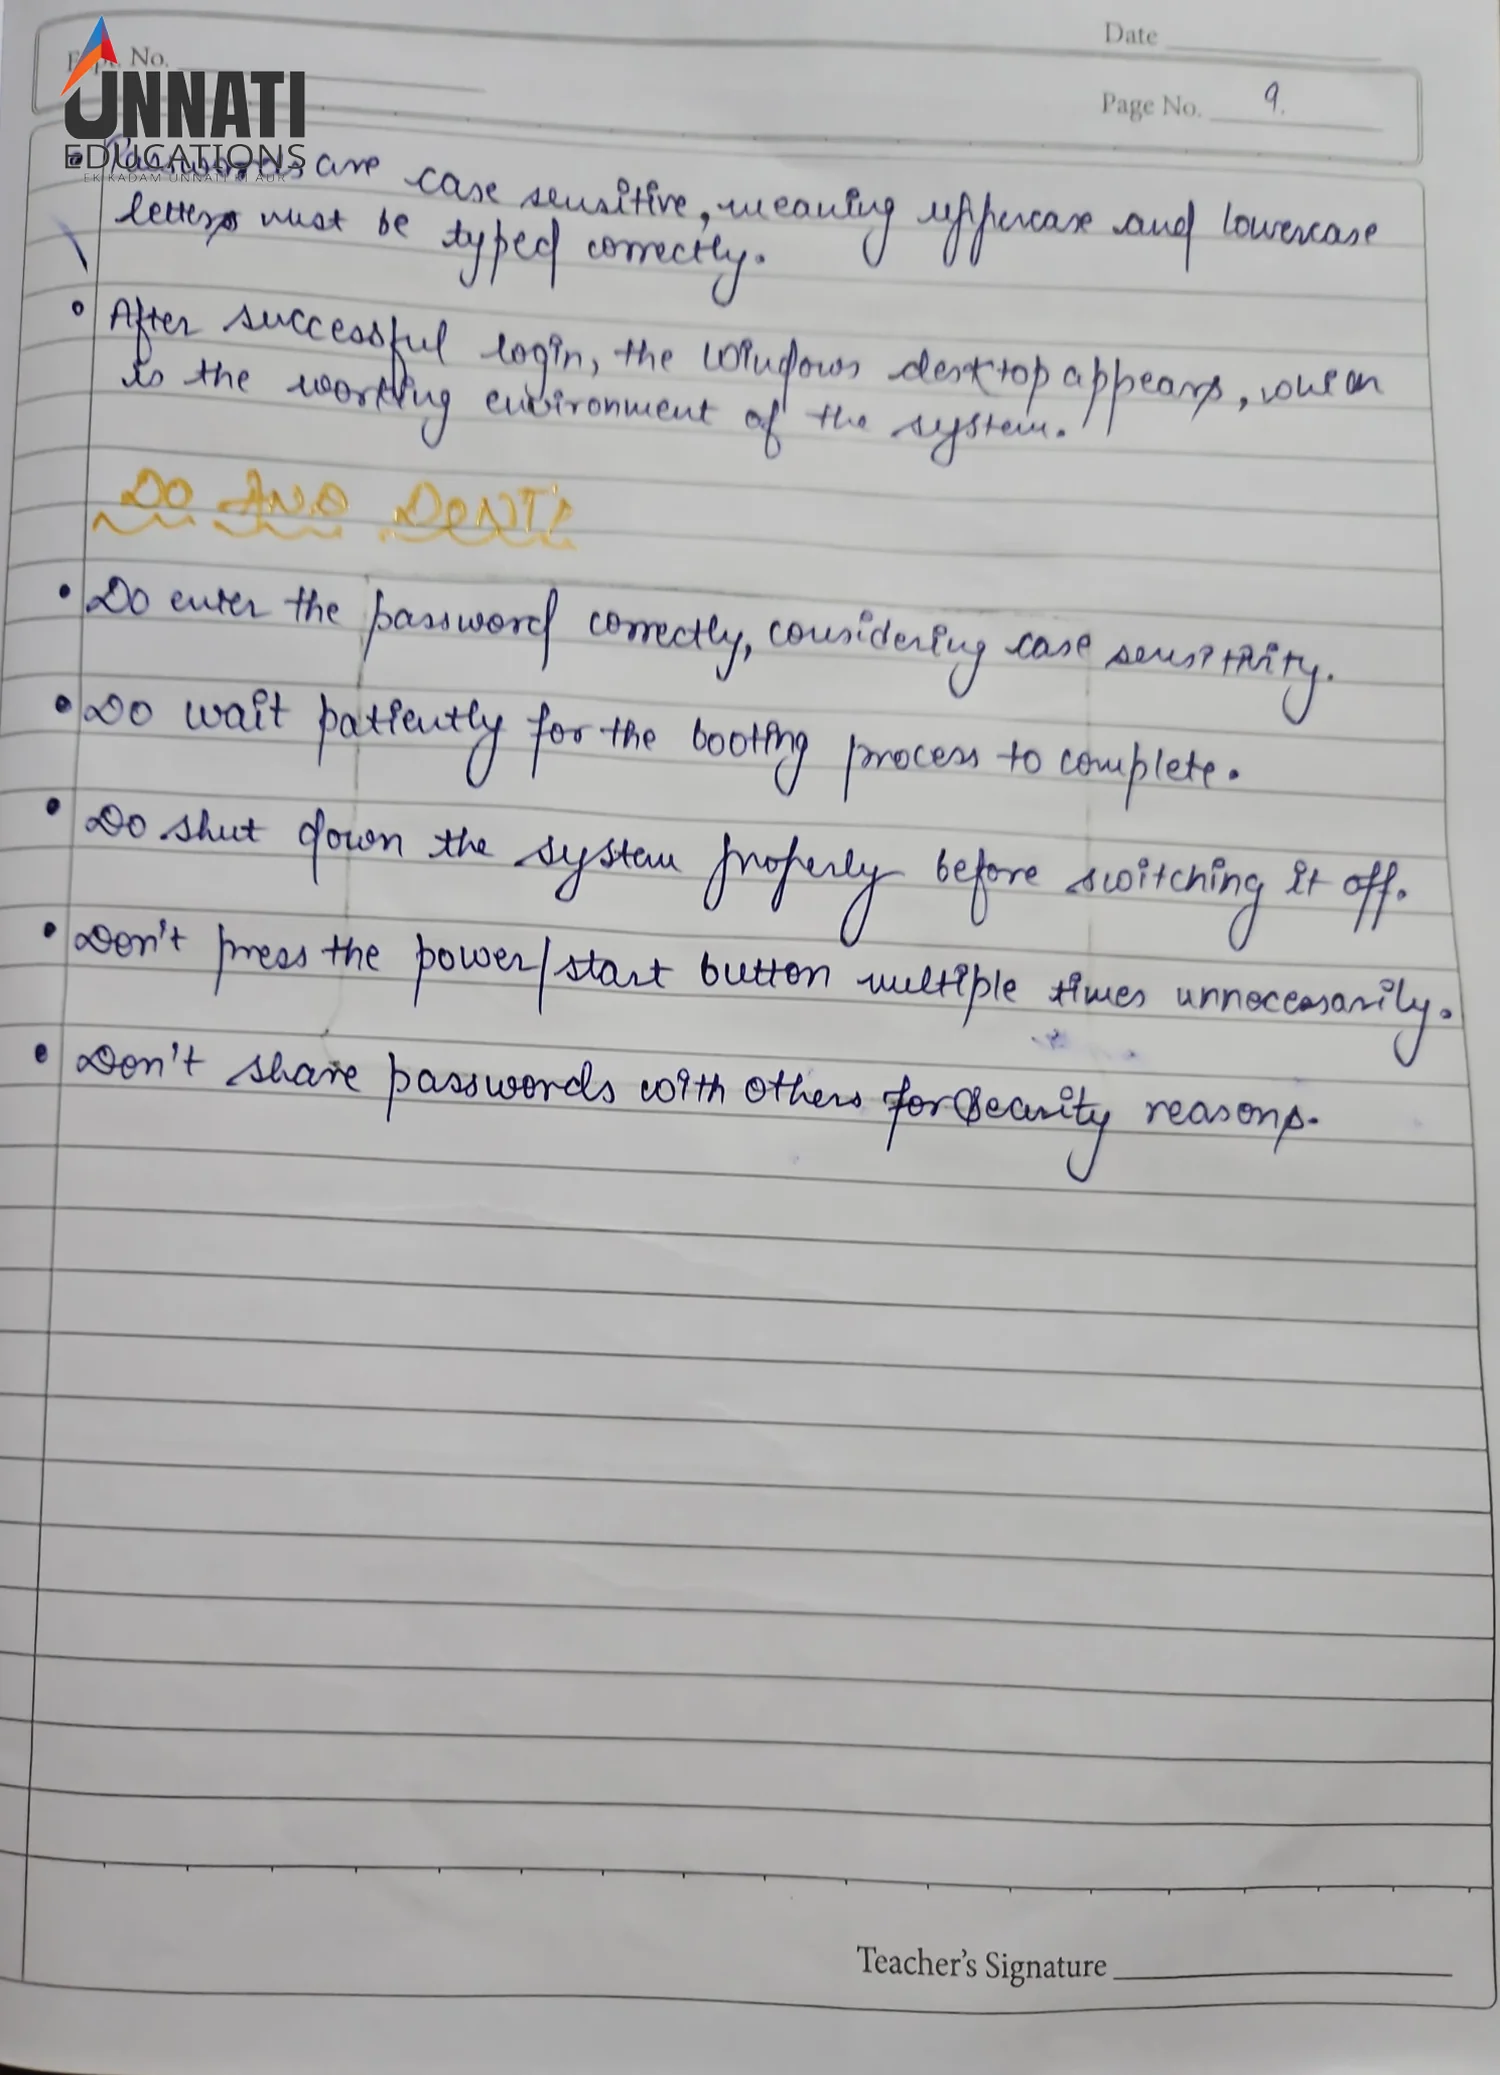 Date
Expt. No.
Page No. 9.
UNNATI
EDUCATIONS
EK KADAM UNNATI KI AUR
• Passwords are case sensitive, meaning uppercase and lowercase
letters must be typed correctly.
• After successful login, the windows desktop appears, which
is the working environment of the system.
DO AND DONT'S
• Do enter the password correctly, considering case sensitivity.
• Do wait patiently for the booting process to complete.
• Do shut down the system properly before switching it off.
• Don't press the power/start button multiple times unnecessarily.
• Don't share passwords with others for security reasons.
Teacher's Signature